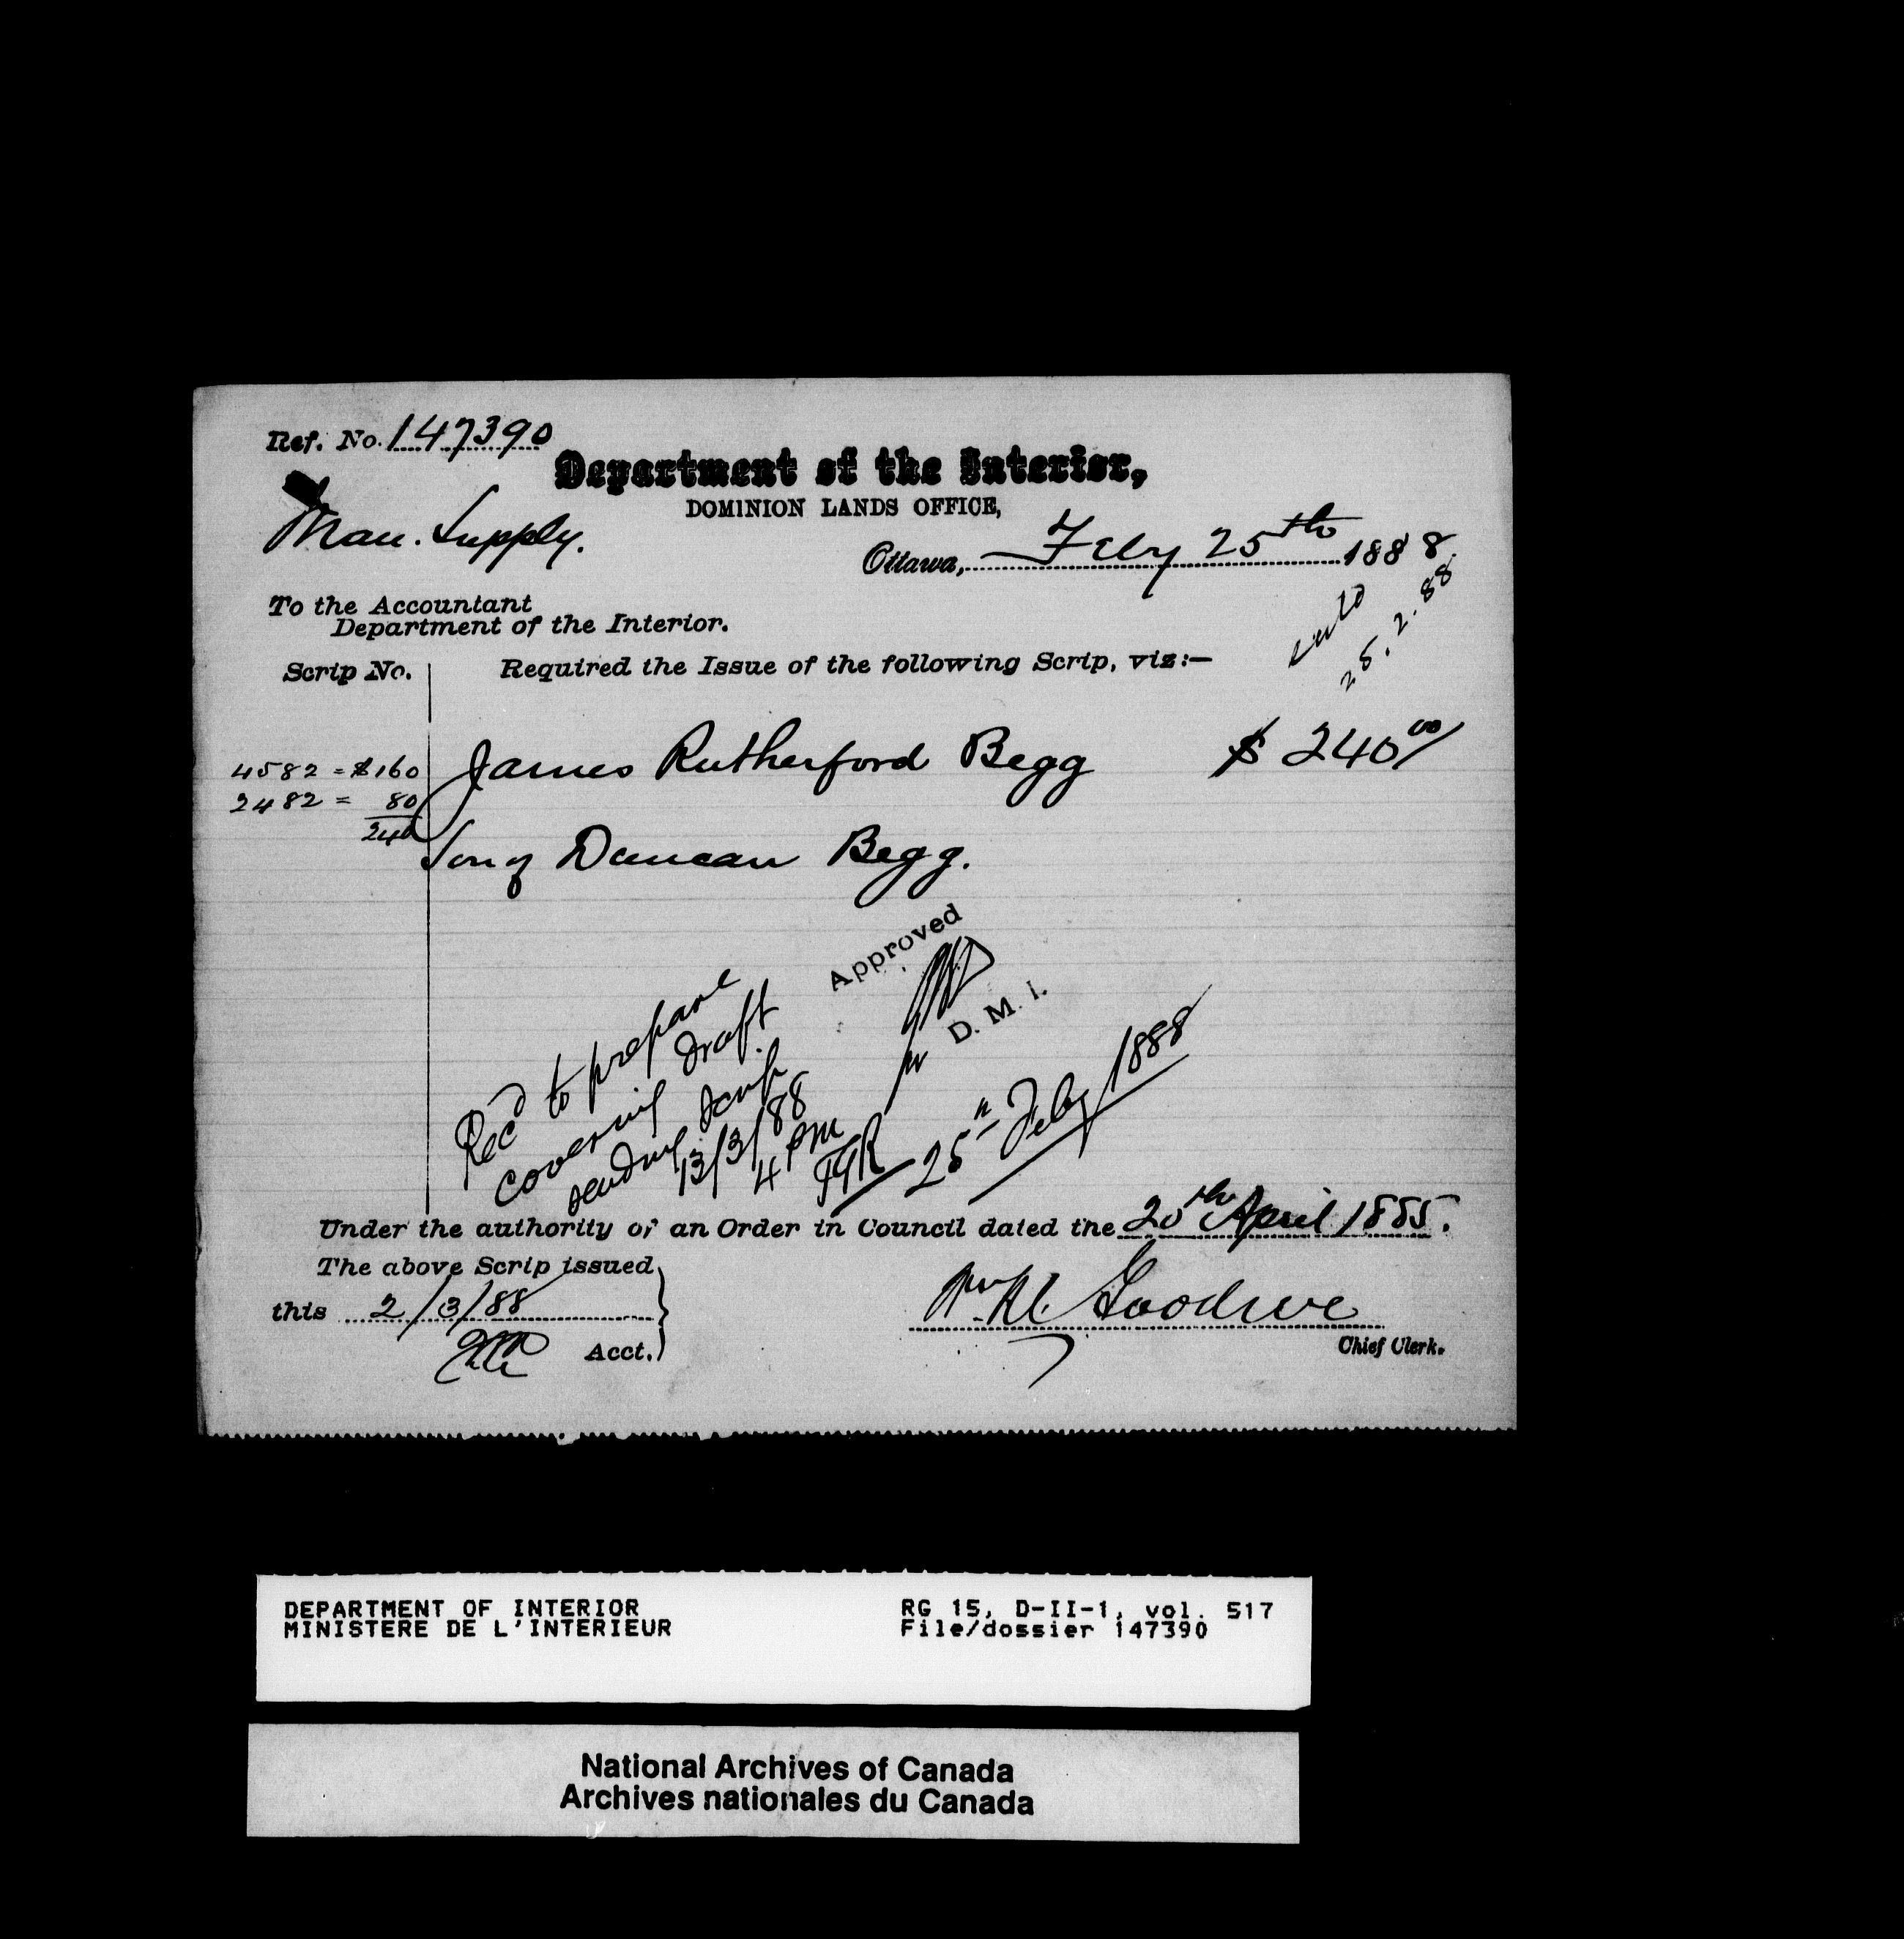 Ref. No. 147390
Department of the Interior,
DOMINION LANDS OFFICE,
Man. Supply.
Ottawa, Feby 25th 1888.
25.2.88
To the Accountant
Department of the Interior.
Scrip No.
Required the Issue of the following Scrip, viz:—
4582 = $160
2482 = 80
240
James Rutherford Begg $ 240 00/
Son of Duncan Begg.
Approved
D. M. I.
25th Feby 1888
Recd to prepare
covering draft
sending scrip
13/3/88
4 PM
Under the authority of an Order in Council dated the 20th April 1885.
The above Scrip issued
this 2/3/88
Acct.
Goodeve
Chief Clerk.
DEPARTMENT OF INTERIOR
MINISTERE DE L'INTERIEUR
RG 15, D-II-1, vol. 517
File/dossier 147390
National Archives of Canada
Archives nationales du Canada